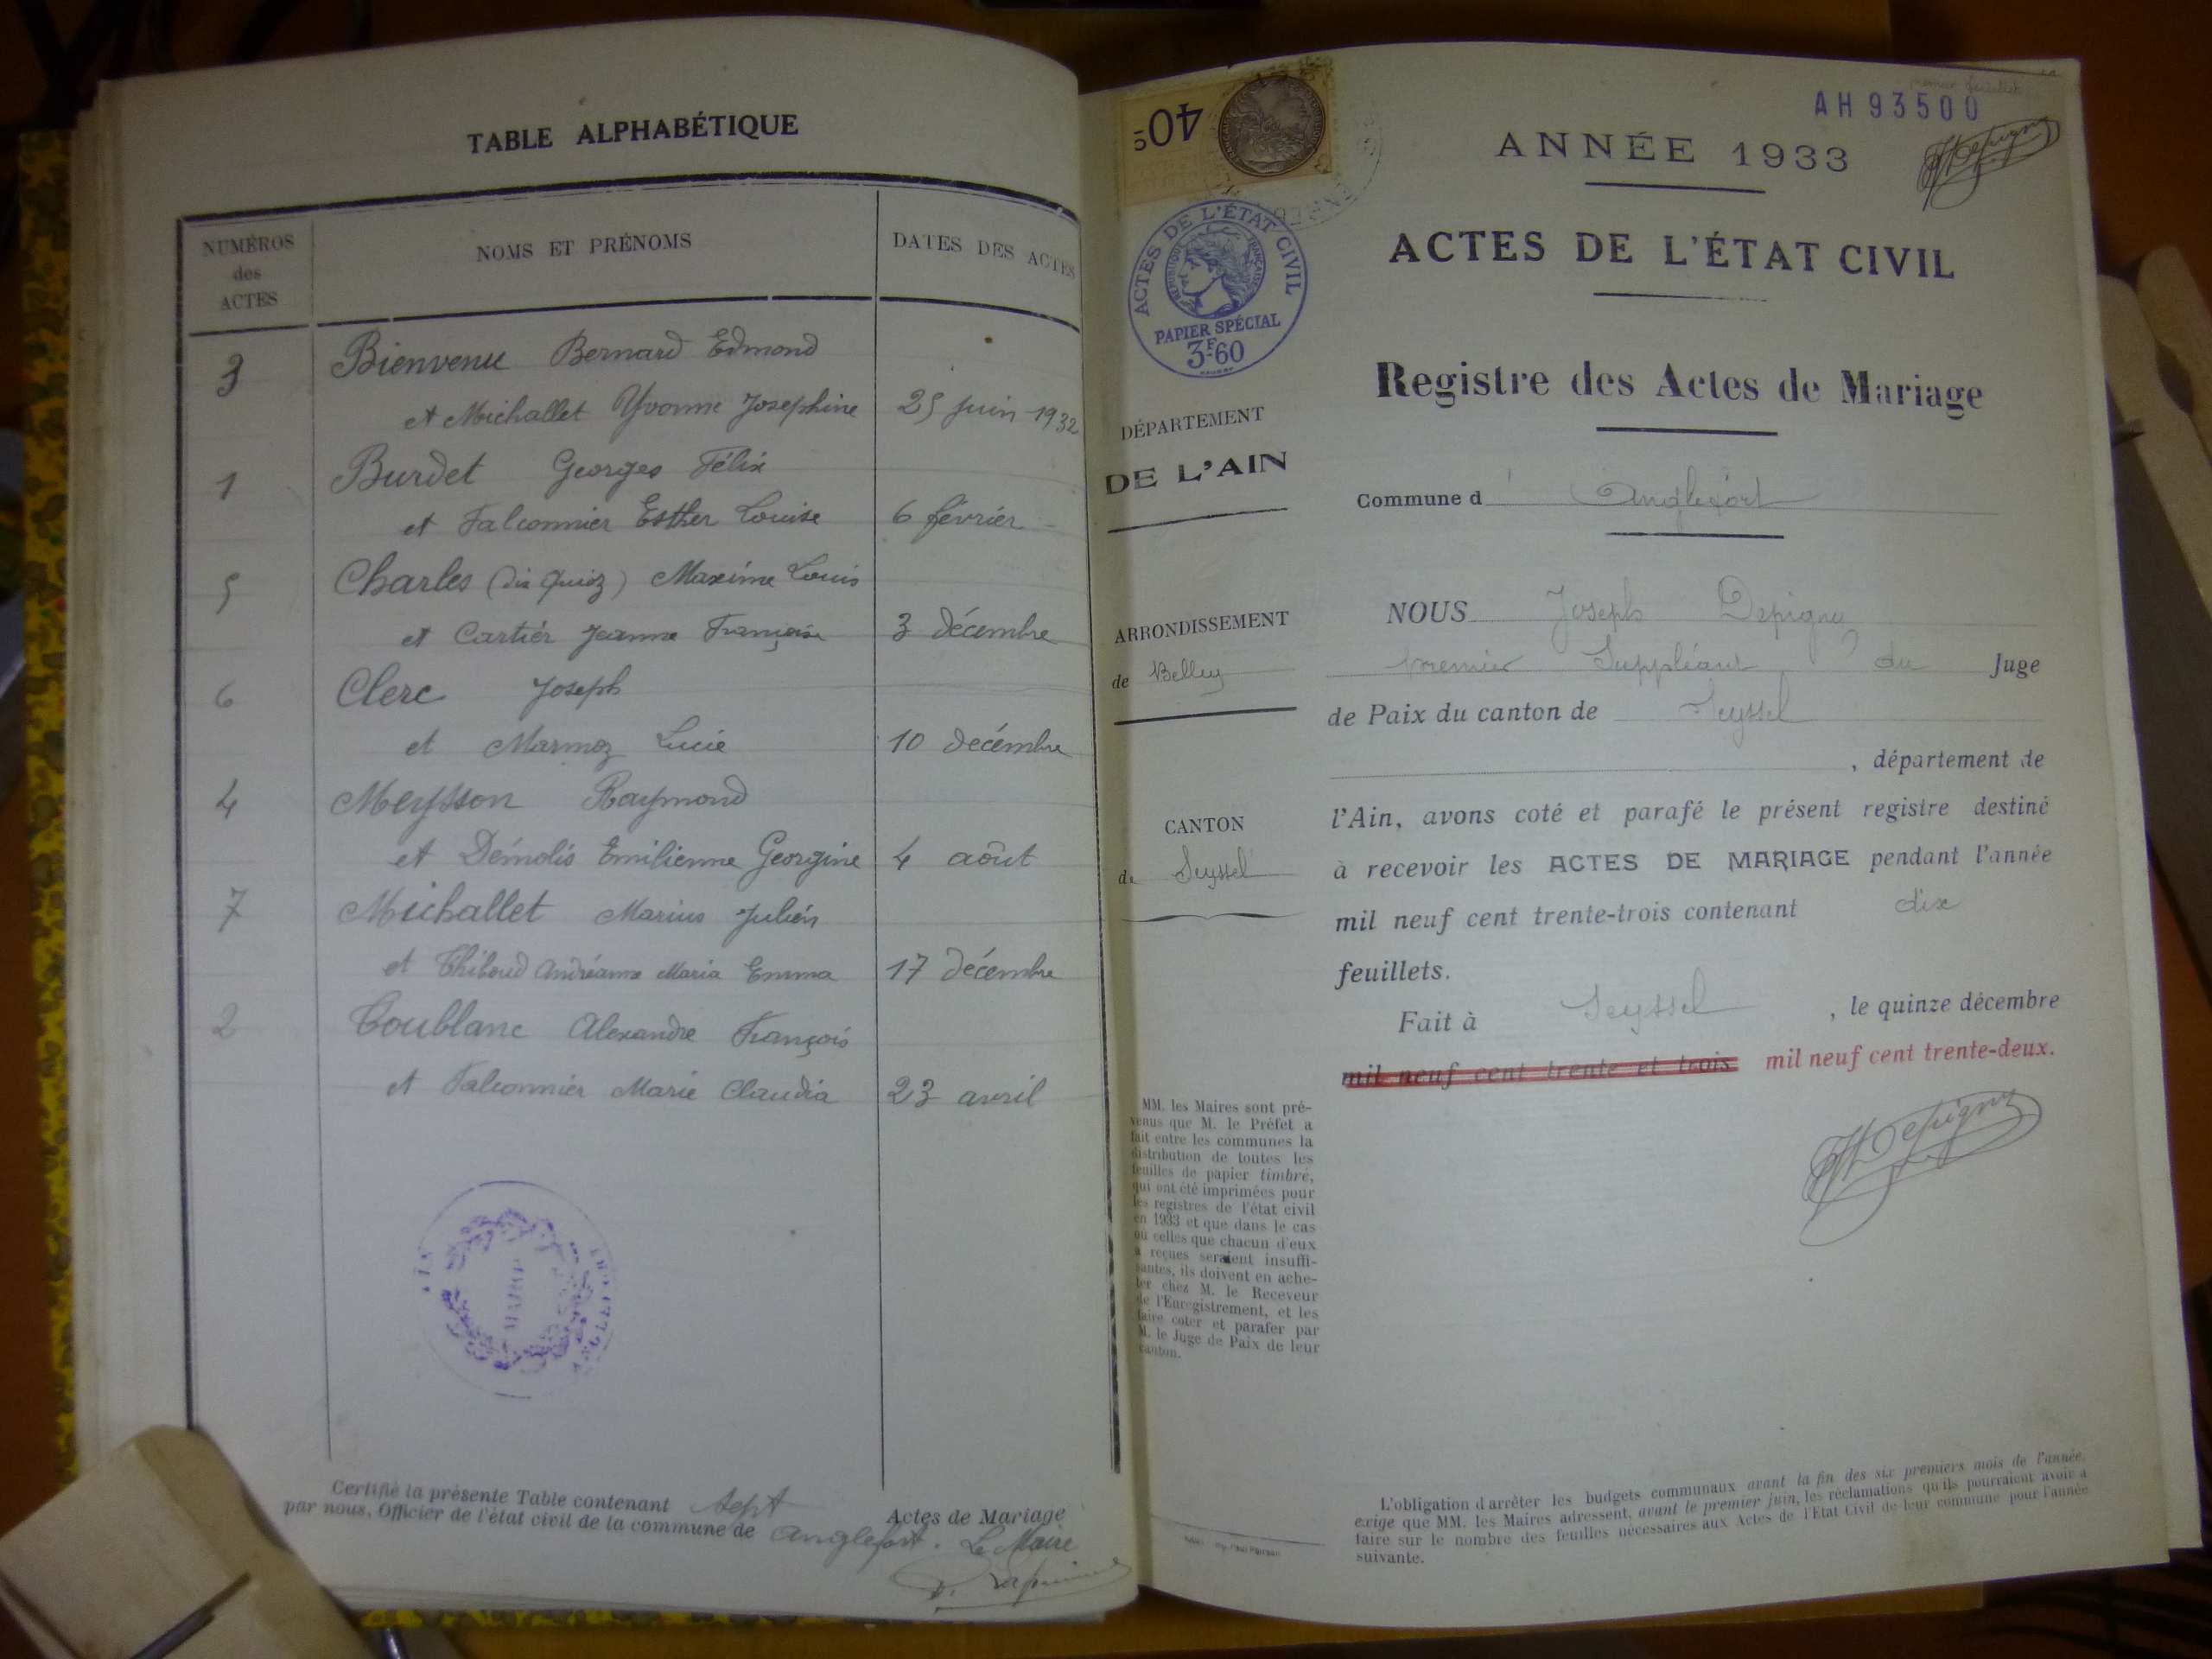 TABLE ALPHABÉTIQUE
NUMÉROS des ACTES
NOMS ET PRÉNOMS
DATES DES ACTES
3 Bienvenu Bernard Edmond
et Michallet Yvonne Josephine 25 juin 1932
1 Burdet Georges Félix
et Falconnier Esther Louise 6 février
5 Charles (dit Quioz) Maxime Louis
et Cartier Jeanne Françoise 3 décembre
6 Clerc Joseph
et Marmoz Lucie 10 decémbre
4 Meysson Raymond
et Démolis Emilienne Georgine 4 août
7 Michallet Marius Julien
et Thiboud Andréanne Maria Emma 17 décembre
2 Toublanc Alexandre François
et Falconnier Marie Claudia 23 avril
MAIRIE
Certifié la présente Table contenant sept Actes de Mariage
par nous, Officier de l'état civil de la commune de Anglefort. Le Maire
AH 93500
40c
ANNÉE 1933
ACTES DE L'ÉTAT CIVIL
RÉPUBLIQUE FRANÇAISE
PAPIER SPÉCIAL
3F.60
ACTES DE L'ÉTAT CIVIL
Registre des Actes de Mariage
DÉPARTEMENT
DE L'AIN
Commune d' Anglefort
ARRONDISSEMENT
de Belley
CANTON
de Seyssel
NOUS Joseph Depigny
premier Suppléant du Juge
de Paix du canton de Seyssel
, département de
l'Ain, avons coté et parafé le présent registre destiné
à recevoir les ACTES DE MARIAGE pendant l'année
mil neuf cent trente-trois contenant dix
feuillets.
Fait à Seyssel , le quinze décembre
mil neuf cent trente et trois mil neuf cent trente-deux.
Depigny
MM. les Maires sont pré-
venus que M. le Préfet a
fait entre les communes la
distribution de toutes les
feuilles de papier timbré,
qui ont été imprimées pour
les registres de l'état civil
en 1933 et que dans le cas
où celles que chacun d'eux
a reçues seraient insuffi-
santes, ils doivent en ache-
ter chez M. le Receveur
de l'Enregistrement, et les
faire coter et parafer par
M. le Juge de Paix de leur
canton.
L'obligation d'arrêter les budgets communaux avant la fin des six premiers mois de l'année,
exige que MM. les Maires adressent, avant le premier juin, les réclamations qu'ils pourraient avoir à
faire sur le nombre des feuilles nécessaires aux Actes de l'Etat Civil de leur commune pour l'année
suivante.